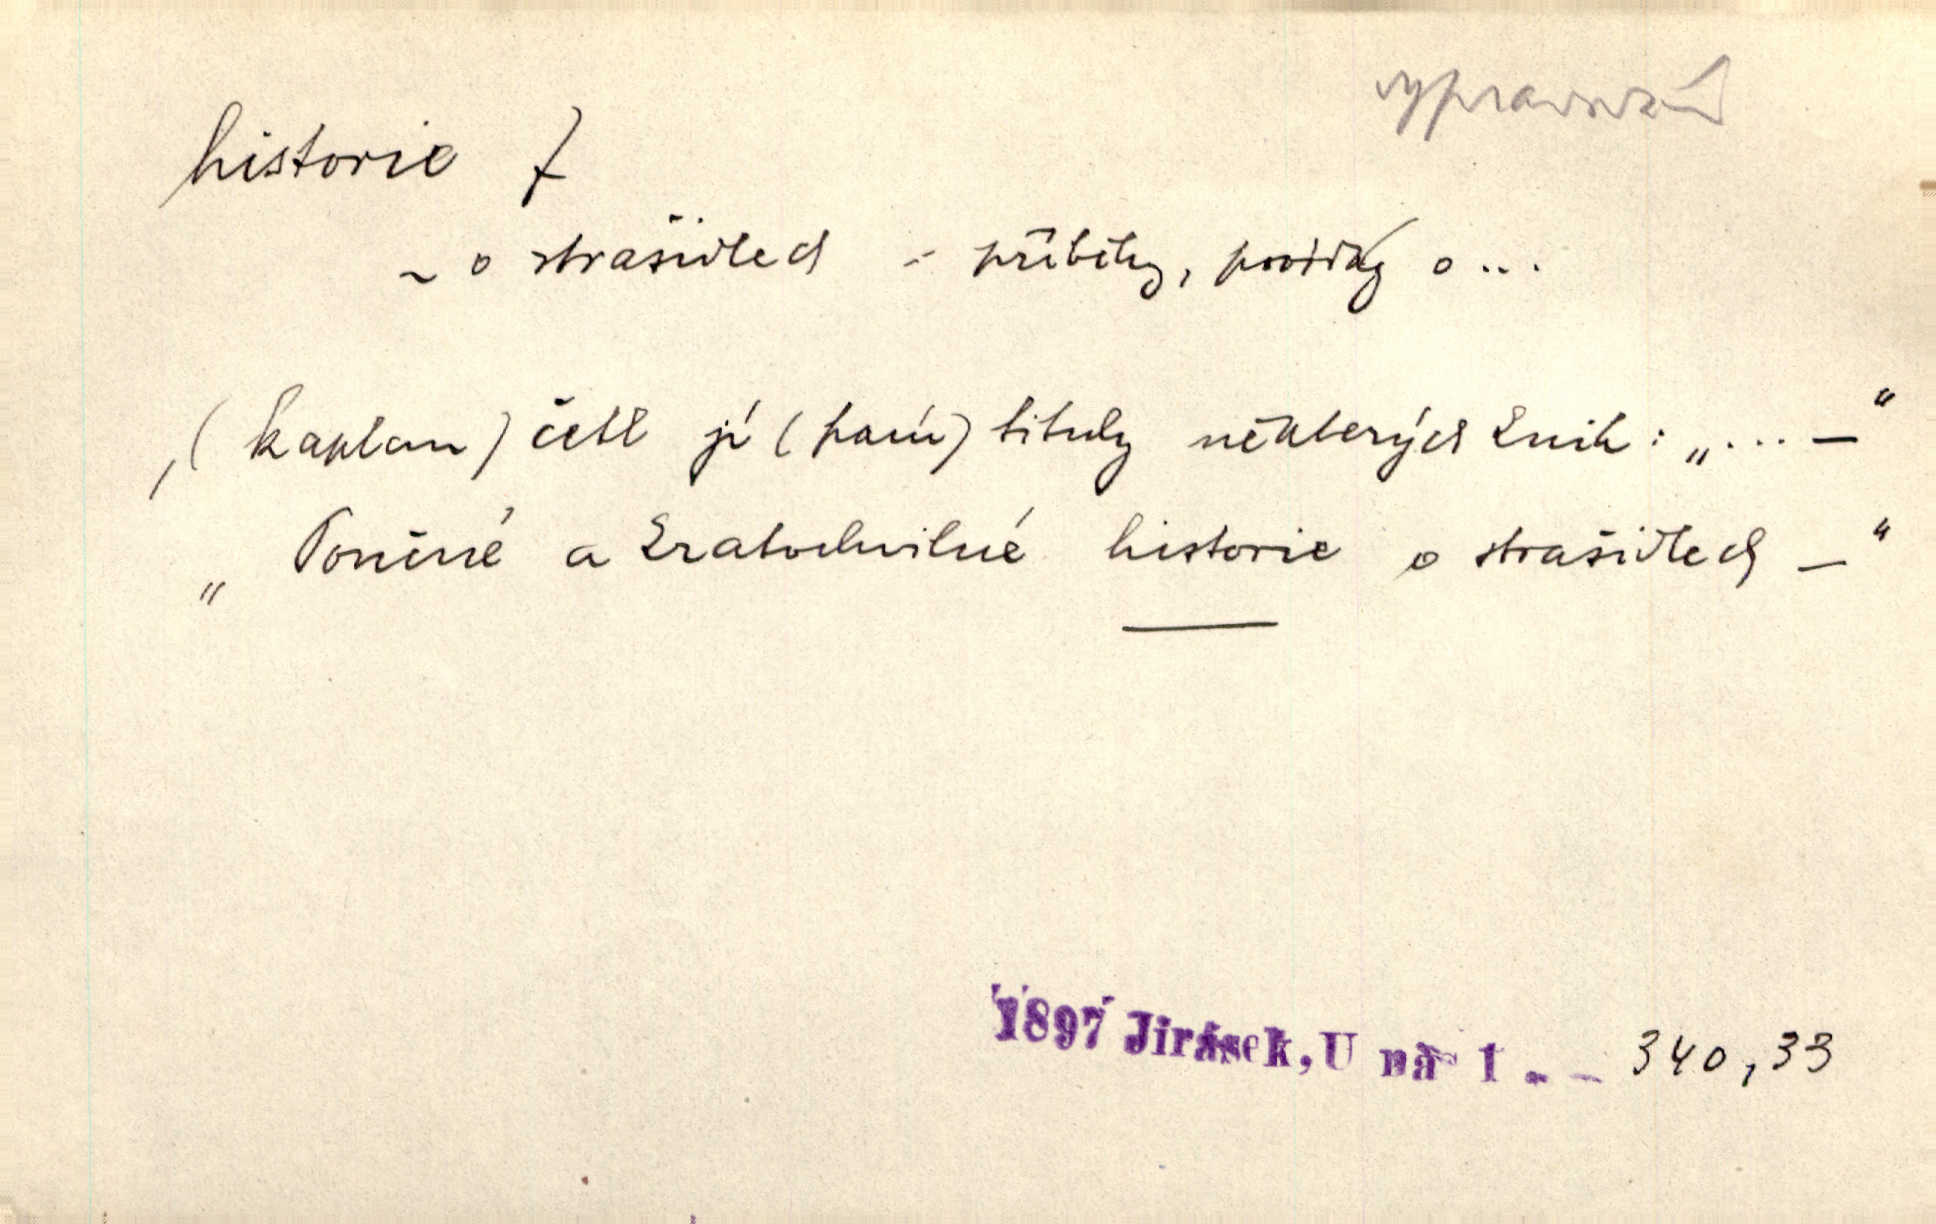 vypravování
historie f
~ o strašidlech = příběhy, povídky o ...
, (kaplan) četl jí (paní) tituly některých knih: „... —“
„Poučné a kratochvilné historie o strašidlech —“
1897 Jirásek, U nás 1. - 340, 33